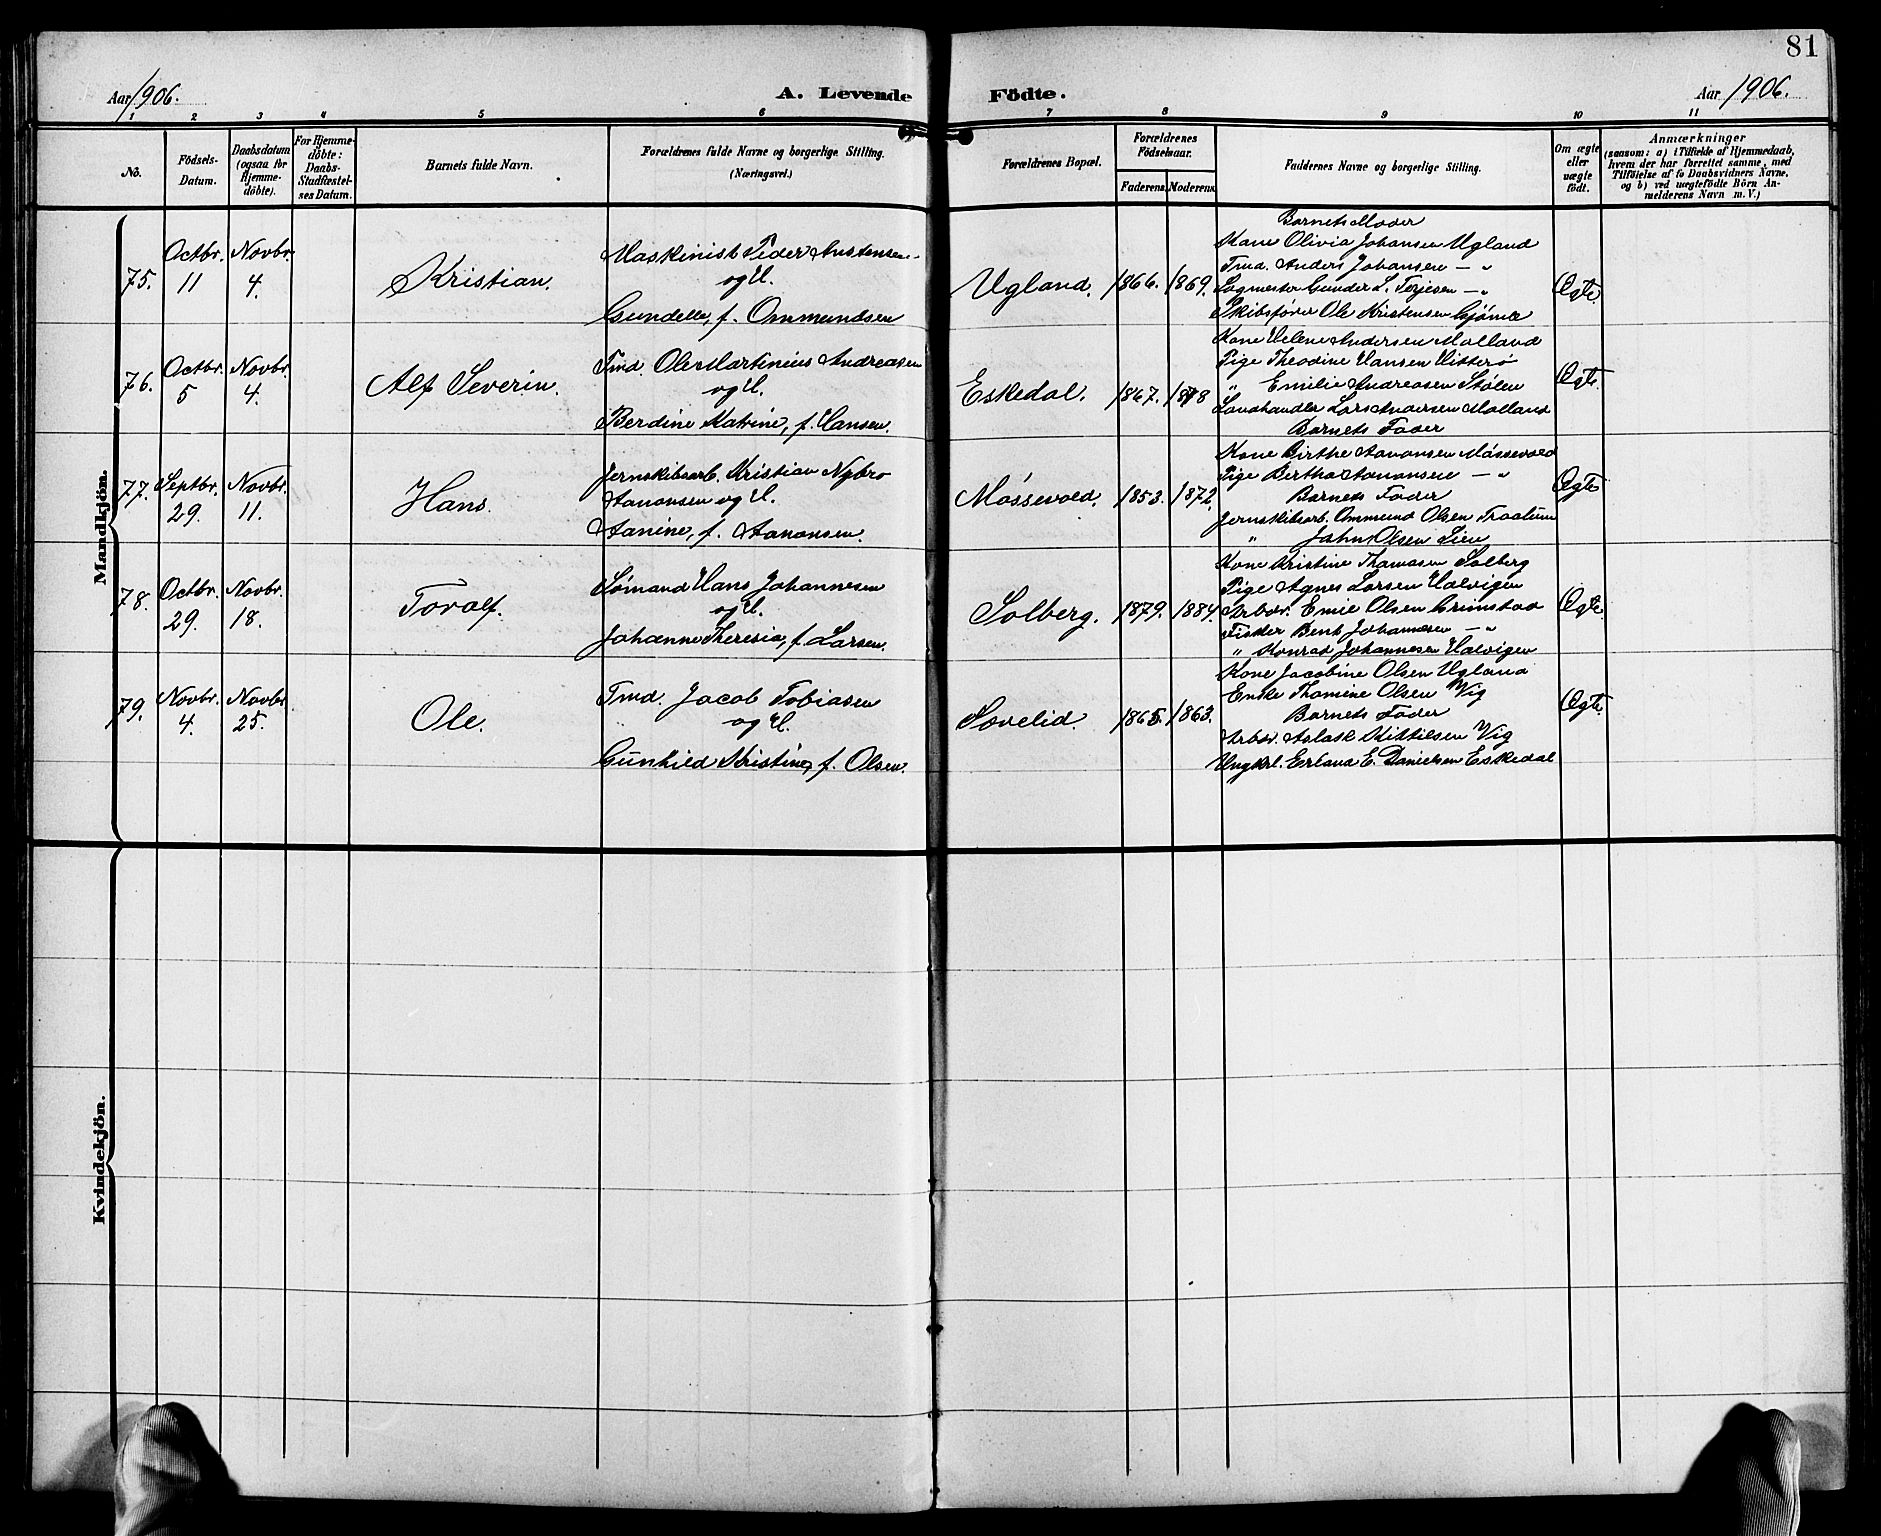 81
Aar 1906.
A. Levende Födte.
Aar 1906.
1 2 3 4 5 6 7 8 9 10 11
No.
Födsels-Datum.
Daabsdatum (ogsaa för Hjemme-döbte).
For Hjemme-döbte: Daabs-Stadfæstel-ses Datum.
Barnets fulde Navn.
Forældrenes fulde Navne og borgerlige Stilling.
(Næringsvei.)
Forældrenes Bopæl.
Forældrenes Födselsaar.
Faderens. Moderens.
Faddernes Navne og borgerlige Stilling.
Om ægte eller uægte födt.
Anmærkninger
(saasom: a) i Tilfælde af Hjemmedaab,
hvem der har forrettet samme, med
Tilföielse af to Daabsvidners Navne,
og b) ved uægtefödte Börn An-
melderens Navn m. V.)
Mandkjön.
75.
Octbr. 11
Novbr. 4.
Kristian.
Maskinist Peder Austensen
og H.
Gundelle, f. Ommundsen
Ugland.
1866. 1869.
Barnets Moder
Kone Olivia Johansen Ugland
Tmd. Anders Johansen — "
Gunder L. Terjesen — "
Skibsfører Ole Kristensen
Ægte.
76.
Octbr. 5
Novbr. 4.
Alf Severin.
Tmd. Ole Martinius Andreasen
og H.
Berdine Katrine, f. Hansen.
Eskedal.
1867. 1878
Kone Helene Andersen Molland
Pige Theodine Hansen Vitterø
" Emilie Andreasen Stølen
Landhandler Lars Andersen Molland
Barnets Fader
Ægte.
77.
Septbr. 29.
Novbr. 11.
Hans.
Jernskibsarb. Kristian Nybro
Aanonsen og H.
Aanine, f. Aanonsen.
Møssevold.
1853. 1872.
Kone Birthe Aanonsen Møssevold
Pige Bertha Aanonsen — "
Barnets Fader
Jernskibsarb. Ommund Olsen Traatum
" John Olsen Lien
Ægte
78.
Octbr. 29.
Novbr. 18.
Toralf.
Sømand Hans Johannesen
og H.
Johanne Theresia, f. Larsen.
Solberg.
1879. 1884.
Kone Kristine Thomasen Solberg
Pige Agnes Larsen Hasvigen
Arbdr. Emil Olsen Grimstad
Fisker Bent Johannesen — "
" Konrad Johannesen Hasvigen
Ægte.
79.
Novbr. 4.
Novbr 25.
Ole.
Tmd. Jacob Tobiasen
og H.
Gunhild Kristine, f. Olsen.
Sævelid
1865. 1863.
Kone Jacobine Olsen Ugland
Enke Thomine Olsen Vig
Barnets Fader
Arbdr. Aslak Kittilsen Vig
Ungkrl. Erland E. Danielsen Eskedal
Ægte.
Kvindekjön.